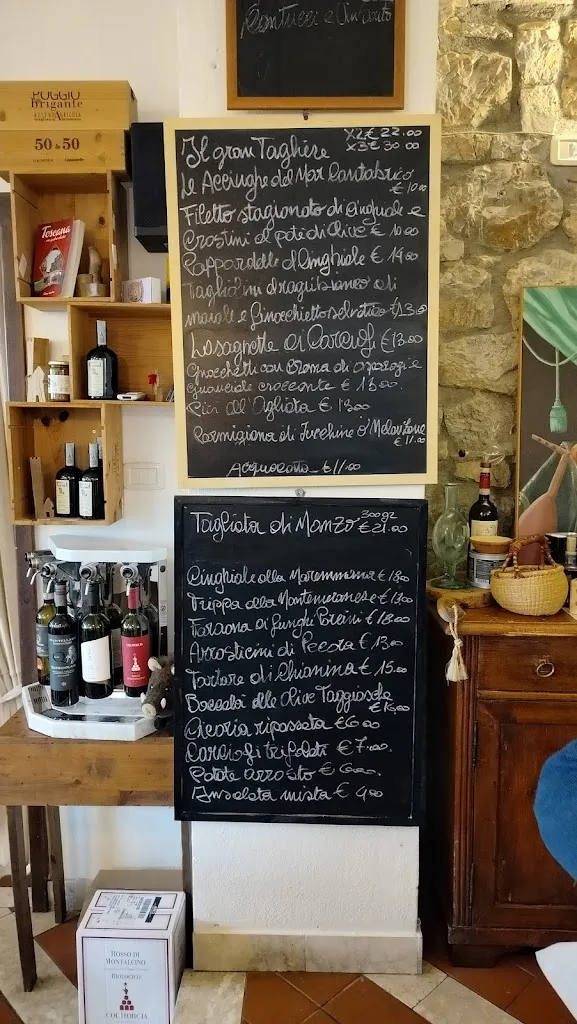 Cantucci e Vin Santo
POGGIO
brigante
AZIENDA AGRICOLA
50 & 50
Toscana
Il gran Tagliere x2 € 22.00
x3 € 30.00
Le Acciughe del Mar Cantabrico
€ 10.00
Filetto stagionato di Cinghiale e
Crostini al patè di Olive € 10.00
Pappardelle al Cinghiale € 14.00
Tagliolini al ragù bianco di
maiale e finocchietto selvatico € 13.00
Lasagnette ai Carciofi € 13.00
Gnocchetti con crema di asparagi e
guanciale croccante € 13.00.
Pici all'Agliata € 13.00
Parmigiana di Zucchine o' Melanzane
€ 11.00
Acquacotta € 11.00
Tagliata di Manzo 300gr
€ 21.00
Cinghiale alla Maremmana € 18.00
Trippa alla Montemeranese € 13.00
Faraona ai funghi Porcini € 18.00
Arrosticini di Pecora € 13.00
Tartare di Chianina € 15.00
Baccalà alle Olive Taggiasche
€ 16.00
Cicoria ripassata € 6.00
Carciofi trifolati € 7.00.
Patate arrosto € 6.00.
Insalata mista € 4.00
ROSSO DI
MONTALCINO
BIOLOGICO
COL D'ORCIA